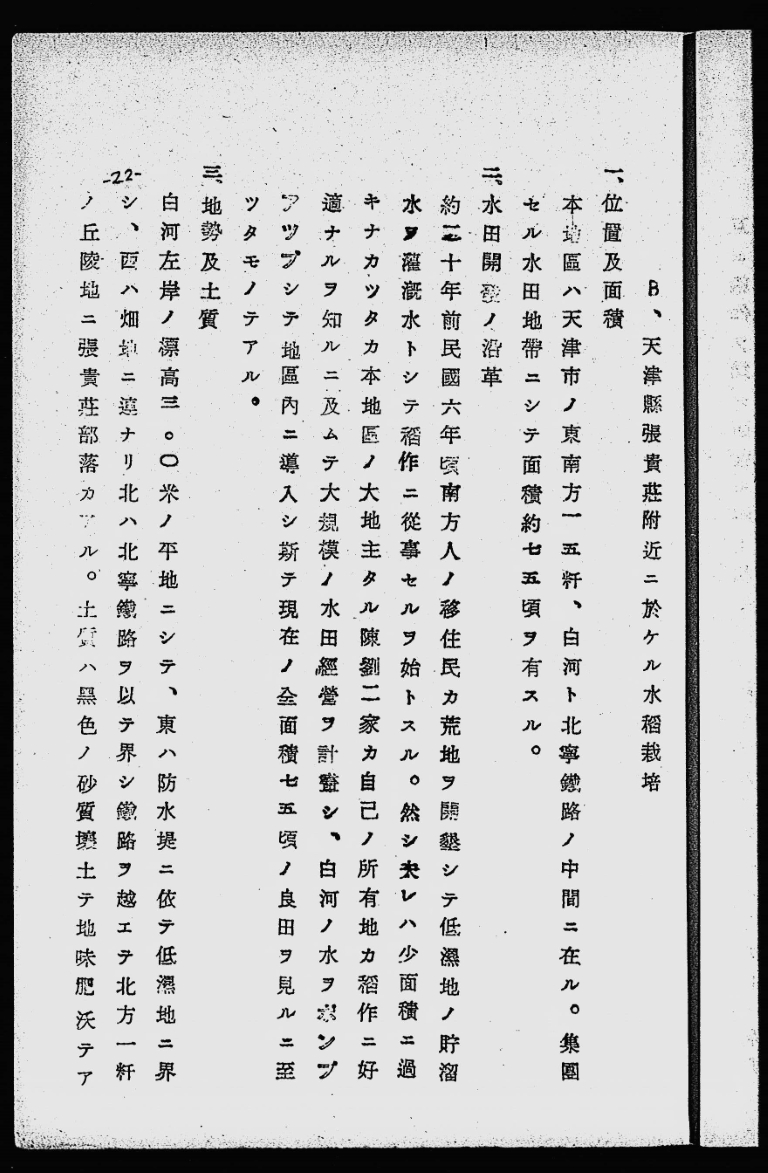 B、天津縣張貴莊附近ニ於ケル水稻栽培
一、位置及面積
本地區ハ天津市ノ東南方一五粁、白河ト北寧鐵路ノ中間ニ在ル。集團
セル水田地帶ニシテ面積約七五頃ヲ有スル。
二、水田開發ノ沿革
約二十年前民國六年頃南方人ノ移住民カ荒地ヲ開墾シテ低濕地ノ貯溜
水ヲ灌漑水トシテ稻作ニ從事セルヲ始トスル。然シ夫レハ少面積ニ過
キナカツタカ本地區ノ大地主タル陳劉二家カ自己ノ所有地カ稻作ニ好
適ナルヲ知ルニ及ムテ大規模ノ水田經營ヲ計畫シ、白河ノ水ヲポンプ
アツプシテ地區內ニ導入シ斯テ現在ノ全面積七五頃ノ良田ヲ見ルニ至
ツタモノテアル。
三、地勢及土質
白河左岸ノ漂高三。〇米ノ平地ニシテ、東ハ防水堤ニ依テ低濕地ニ界
シ、西ハ畑地ニ連ナリ北ハ北寧鐵路ヲ以テ界シ鐵路ヲ越エテ北方一粁
ノ丘陵地ニ張貴莊部落カアル。土質ハ黑色ノ砂質壤土テ地味肥沃テア
-22-